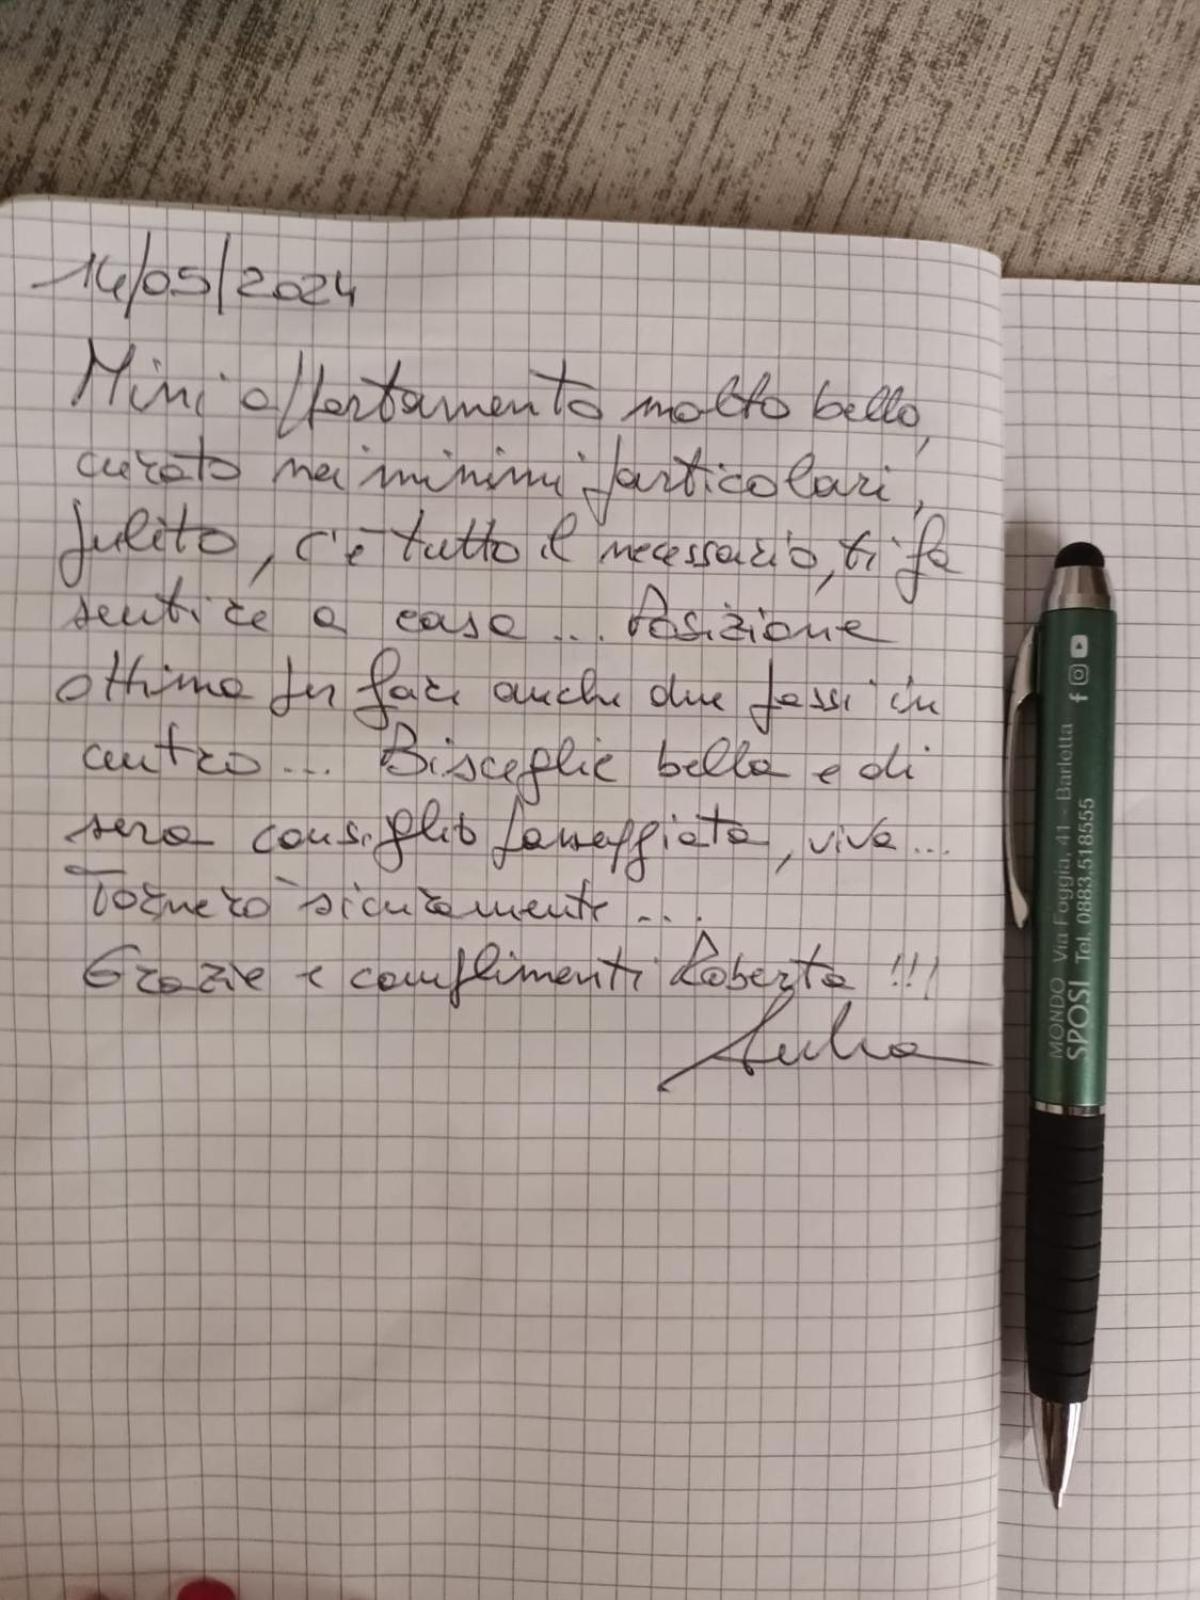 14/05/2024
Mini appartamento molto bello,
curato nei minimi particolari,
pulito, c'è tutto il necessario, ti fa
sentire a casa ... Posizione
ottima per fare anche due passi in
centro ... Bisceglie bella e di
sera consiglio passeggiata, viva ...
Tornerò sicuramente ...
Grazie e complimenti Roberta !!!
MONDO Via Foggia, 41 - Barletta
SPOSI Tel. 0883.518555